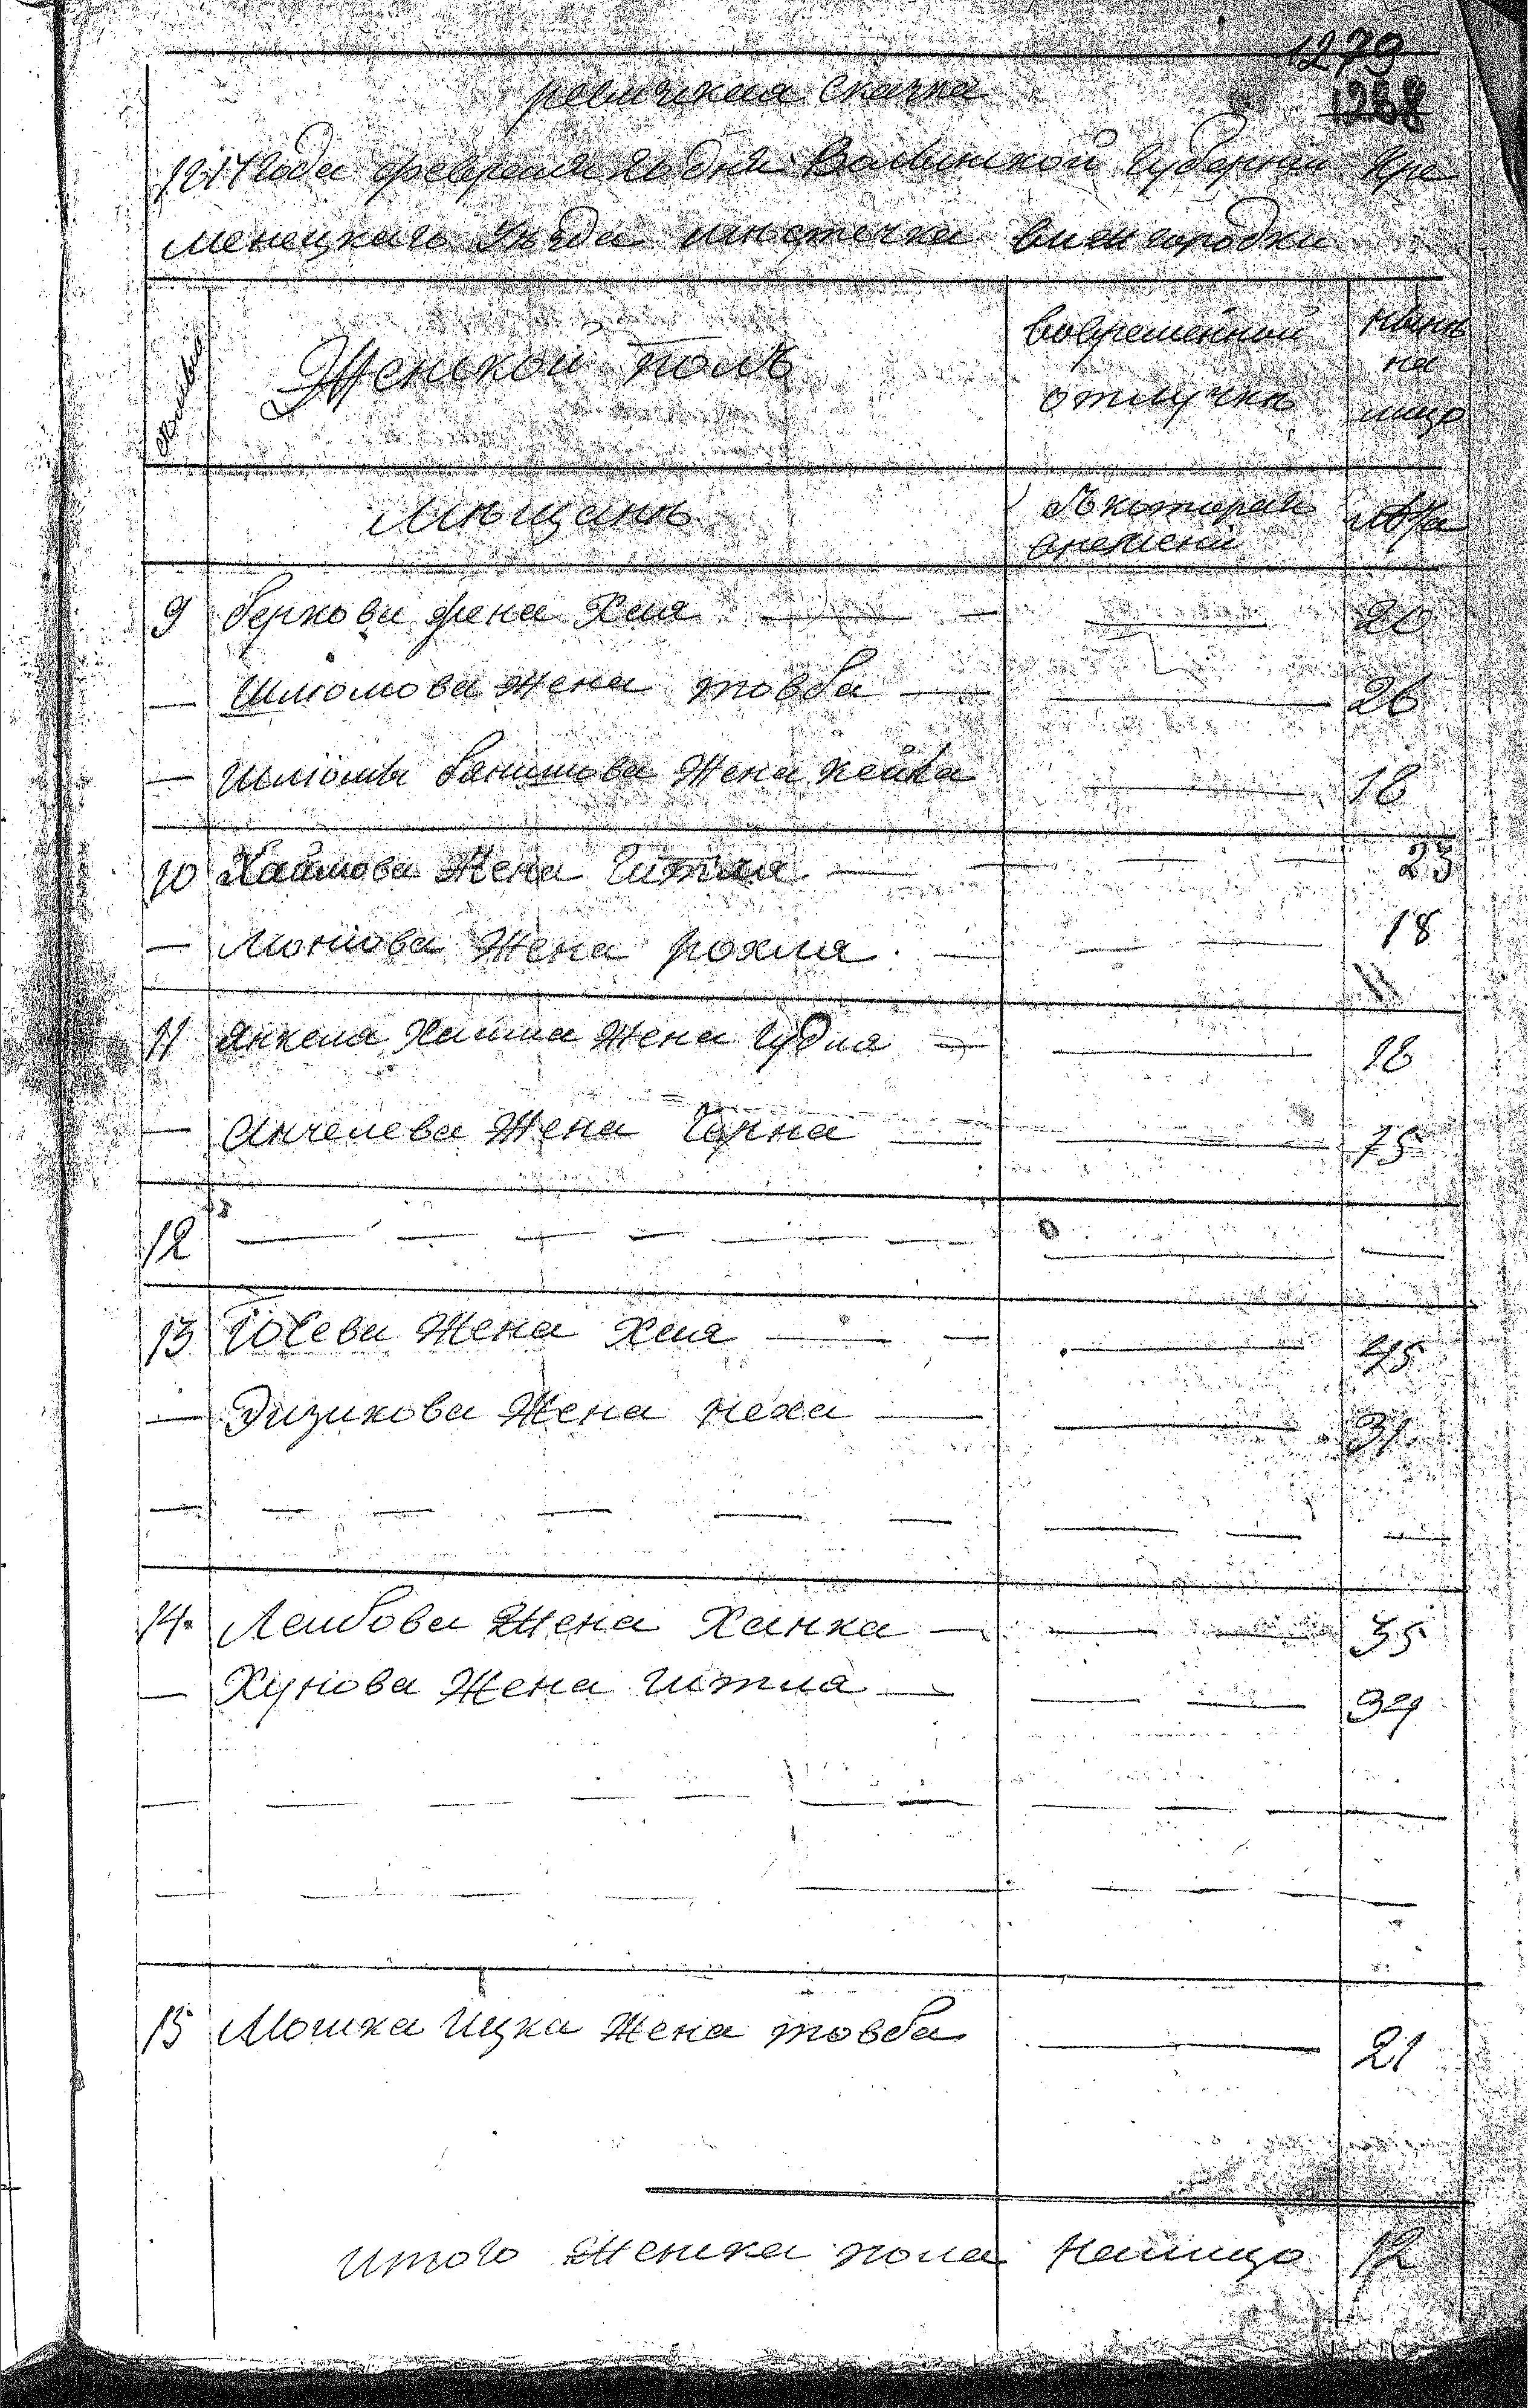 1279
1268
ревичская Сказка
1817 года февраля дня Волынской Губернии Кре
менецкаго Уезда местечка вижгородки
Женской полъ
вовременной отлучкѣ
нынѣ на лицо
Мѣщанъ
Съ которого времени
лѣта
9 беркова жена Хая — — — 20
— Шлиомова жена товба — — 26
— Шлиомы Жена хейка — 18
10 Хаимова Жена Гитля — — — — 25
— Мониова Жена рохля — — — 18
11
11 Янкела Хаима Жена Гудля — — 18
— Анчелева Жена Черна — — 15
12 — — — — — — — —
13 Іосева Жена Хая — — — 45
— Эизикова Жена неха — — 31
— — — — — — — — —
14 Леибова Жена Ханка — — — 35
— Хунова Жена гитля — — — 34
— — — — — — — — —
— — — — — — — —
15 Мошка Ицка Жена товба — 21
итого женска пола налицо 12